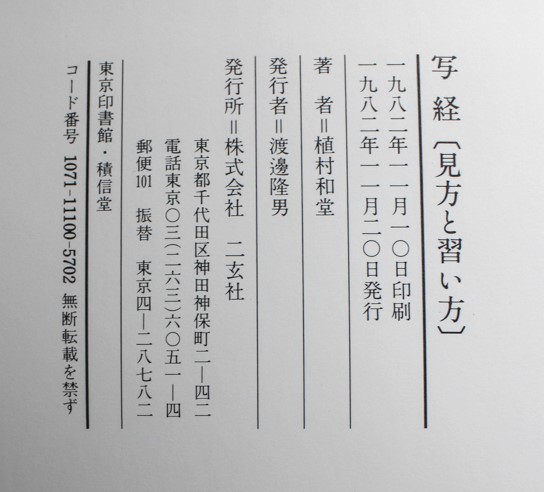 写経〔見方と習い方〕
一九八二年一一月一〇日印刷
一九八二年一一月二〇日発行
著　者＝植村和堂
発行者＝渡邊隆男
発行所＝株式会社　二玄社
東京都千代田区神田神保町二―四二
電話東京〇三(二六三)六〇五一―四
郵便101　振替　東京四―二八七八二
東京印書館・積信堂
コード番号　1071-11100-5702　無断転載を禁ず